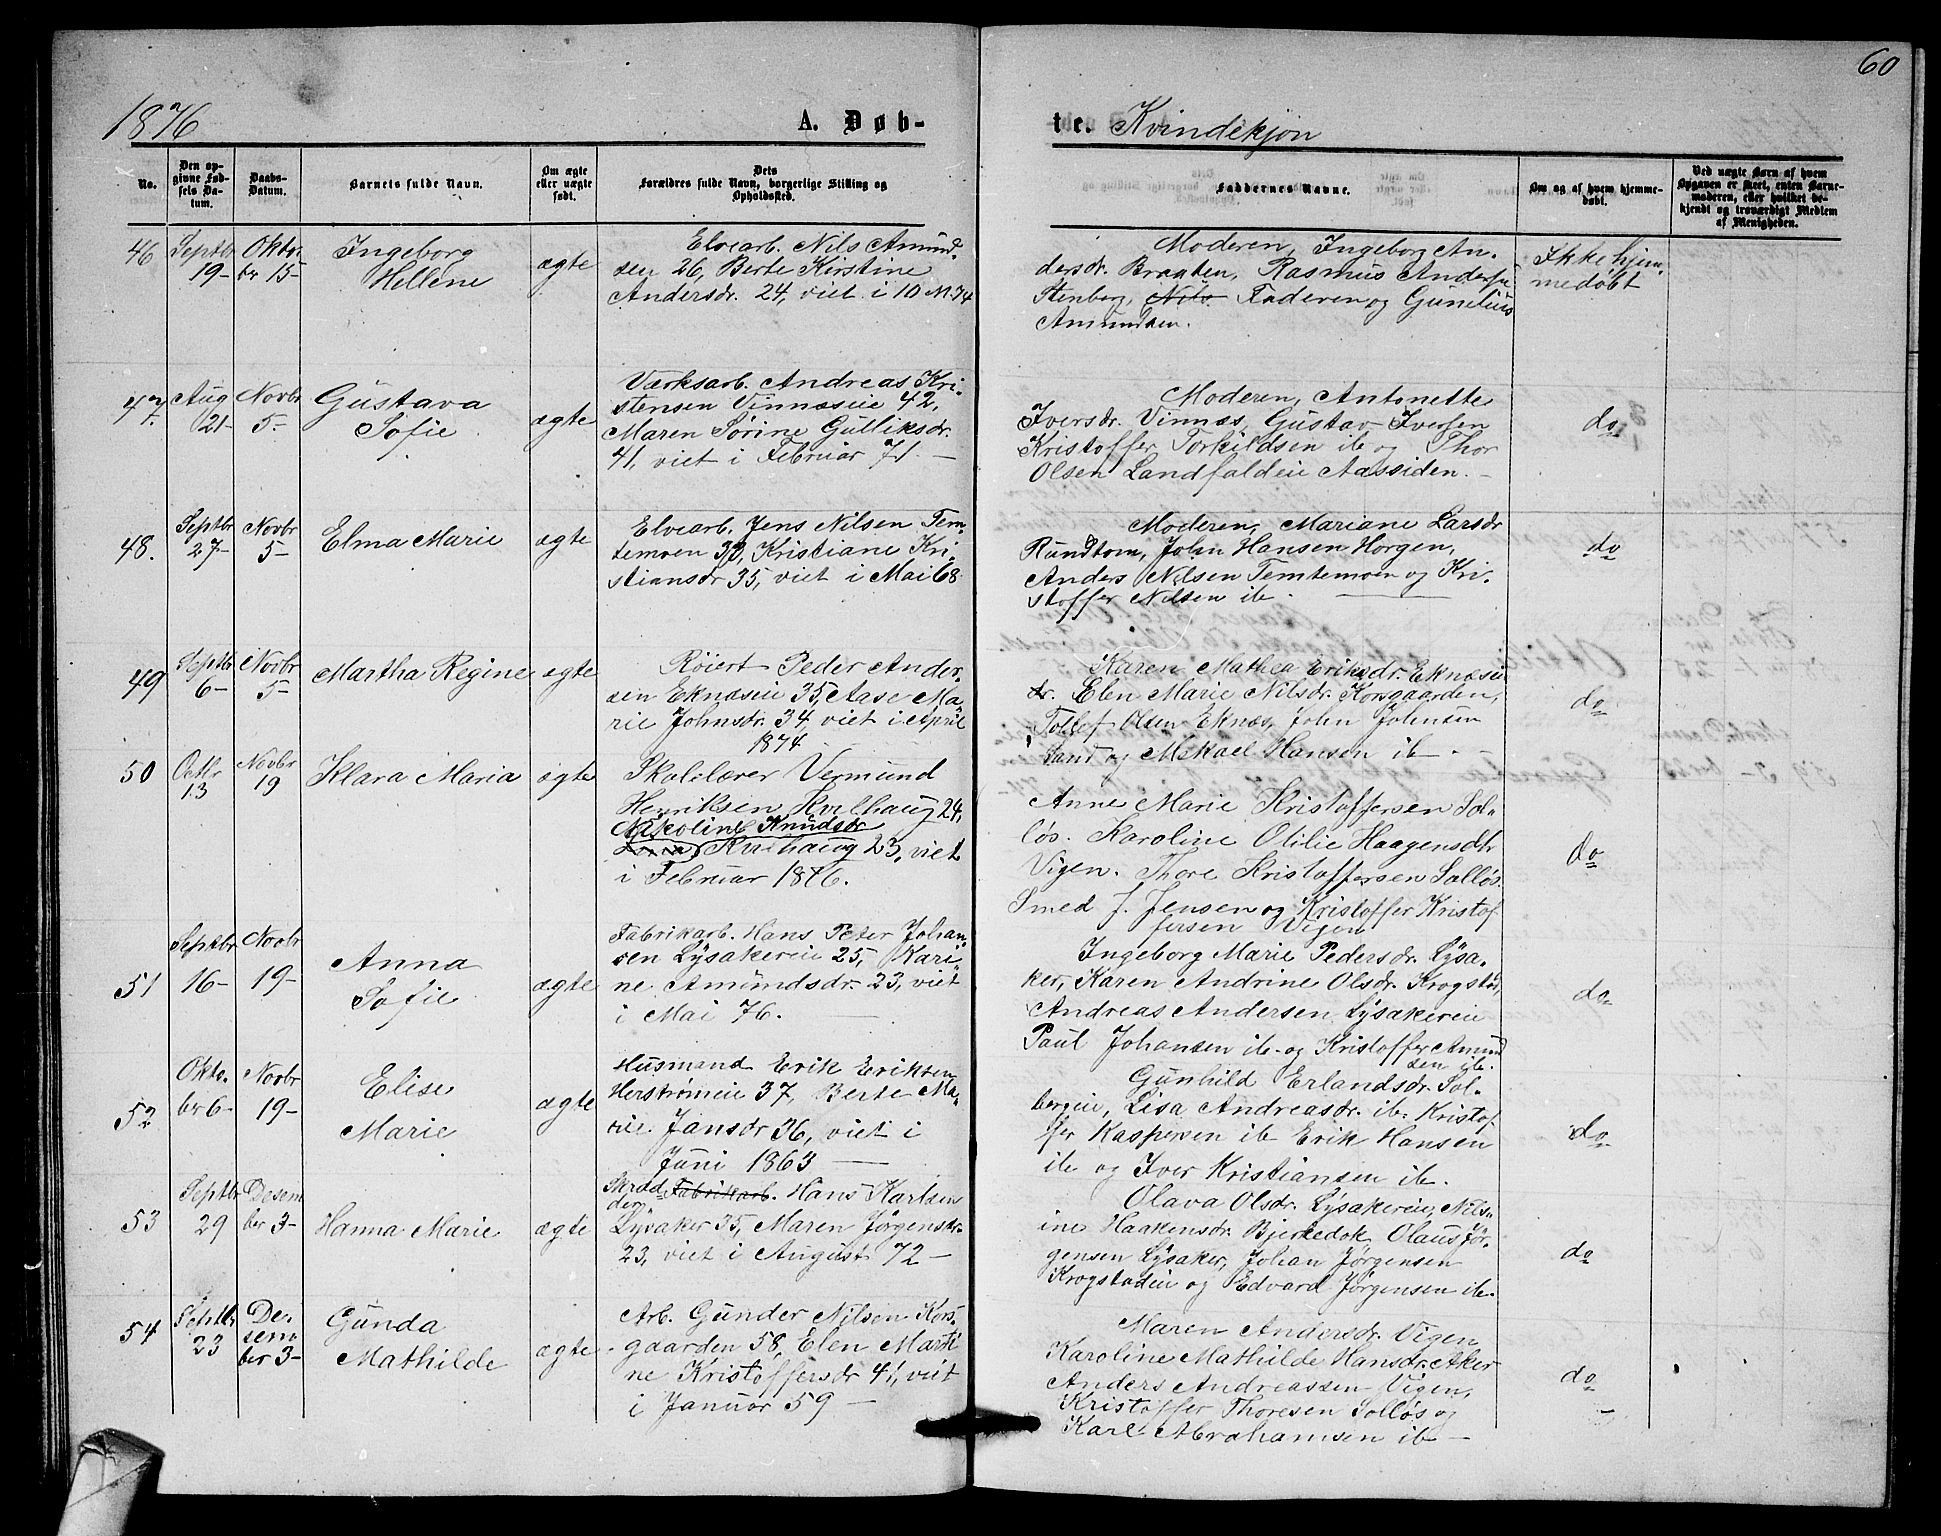 60
1876
A. Døb-
te. Kvindekjön
No.
Den op-
givne Fød-
sels Da-
tum.
Daabs-
Datum.
Barnets fulde Navn.
Om ægte
eller uægte
født.
Dets
Forældres fulde Navn, borgerlige Stilling og
Opholdssted.
Faddernes Navne.
Om og af hvem hjemme-
døbt.
Ved uægte Børn af hvem
Opgaven er skeet, enten Barne-
moderen, eller hvilket be-
kjendt og troværdigt Medlem
af Menigheden.
46
Septbr
19-
Okto-
ber 15-
Ingeborg
Hellene
ægte
Elvearb. Nils Amund-
sen 26, Berte Kirstine
Andersdr. 24, viet i 10 M. 74
Moderen, Ingeborg An-
dersdr. Braaten, Rasmus Andersn
Stenberg, Nils Faderen og Gunelius
Amundsen.
Ikke hjem-
medöbt
47.
Aug
21-
Novbr
5-
Gustava
Sofie
ægte
Værksarb. Andreas Kri-
stensen Vinnæseie 42,
Maren Sørine Gulliksdr.
41, viet i Februar 71. -
Moderen, Antonette
Iversdr. Vinnæs, Gustav Iversen
Kristoffer Torkildsen ib og Thor
Olsen Landfaldeie Aassiden. -
do
48.
Septbr
27-
Novbr
5-
Elma Marie
ægte
Elvearb. Jens Nilsen Tem-
temoen 30, Kristiane Kri-
stiansdr 35, viet i Mai 68
Moderen, Mariane Larsdr
Rundtom, John Hansen Horgen,
Anders Nilsen Temtemoen og Kri-
stoffer Nilsen ib.
do
49
Septbr
6-
Novbr
5-
Martha Regine
ægte
Röiert Peder Ander-
sen Eknæseie 35, Aase Ma-
rie Johnsdr. 34, viet i April
1874
Karen Mathea Eriksdr. Eknæseie
dr. Elen Marie Nilsdr. Korsgaarden,
Tollof Olsen Eknæs, John Johnsen
Sand og Mikael Hansen ib -
do
50
Octbr
13
Novbr
19
Klara Maria
ægte
Skolelærer Vermund
Henriksen Kvelhaug 24,
Nikoline Knudsdr
Kvelhaug 23, viet
i Februar 1876.
Anne Marie Kristoffersen Sol-
løs. Karoline Otilie Haagensdtr
Vigen. Thore Kristoffersen Solløs.
Smed J. Jensen og Kristoffer Kristof-
fersen Vigen
do
51
Septbr
16-
Novbr
19-
Anna
Sofie
ægte
Fabrikarb. Hans Peter Johan-
sen Lysakereie 25, Kari-
ne Amundsdr. 23, viet
i Mai 76.
Ingeborg Marie Pedersdr. Lysa-
ker, Karen Andrine Olsdr. Krogstad,
Andreas Andersen Lysakereie
Paul Johansen ib. og Kristoffer Amund
sen ib.
do
52
Okto-
ber 6-
Novbr
19-
Elise
Marie
ægte
Husmand Erik Eriksen
Herstrømeie 37, Berte Ma-
rie Jansdr 36, viet i
Juni 1863 -
Gunhild Erlandsdr. Sol-
bergeie, Lisa Andreasdr. ib. Kristof-
fer Kaspersen ib Erik Hansen
ib og Iver Kristiansen ib.
do
53
Septbr
29
Desem
ber 3-
Hanna Marie
ægte
Skræd-
der Fabrikarb. Hans Karlsen
Lysaker 35, Maren Jørgensdr.
23, viet i August 72 -
Olava Olsdr. Lysakereie, Nils-
ine Haakensdr. Bjerkedok, Olaus Jör-
gensen Lysaker, Johan Jørgensen
Krogstadeie og Edvard Jørgensen ib.
do
54
Septbr
23
De-
sem-
ber 3-
Gunda
Mathilde
ægte
Arb. Gunder Nilsen Kors-
gaarden 58, Elen Marti-
ne Kristoffersdr 41, viet
i Januar 59 -
Maren Andersdr. Vigen
Karoline Mathilde Hansdr. Aker
Anders Andreassen Vigen,
Kristoffer Thoresen Solløs og
Karl Abrahamsen ib -
do